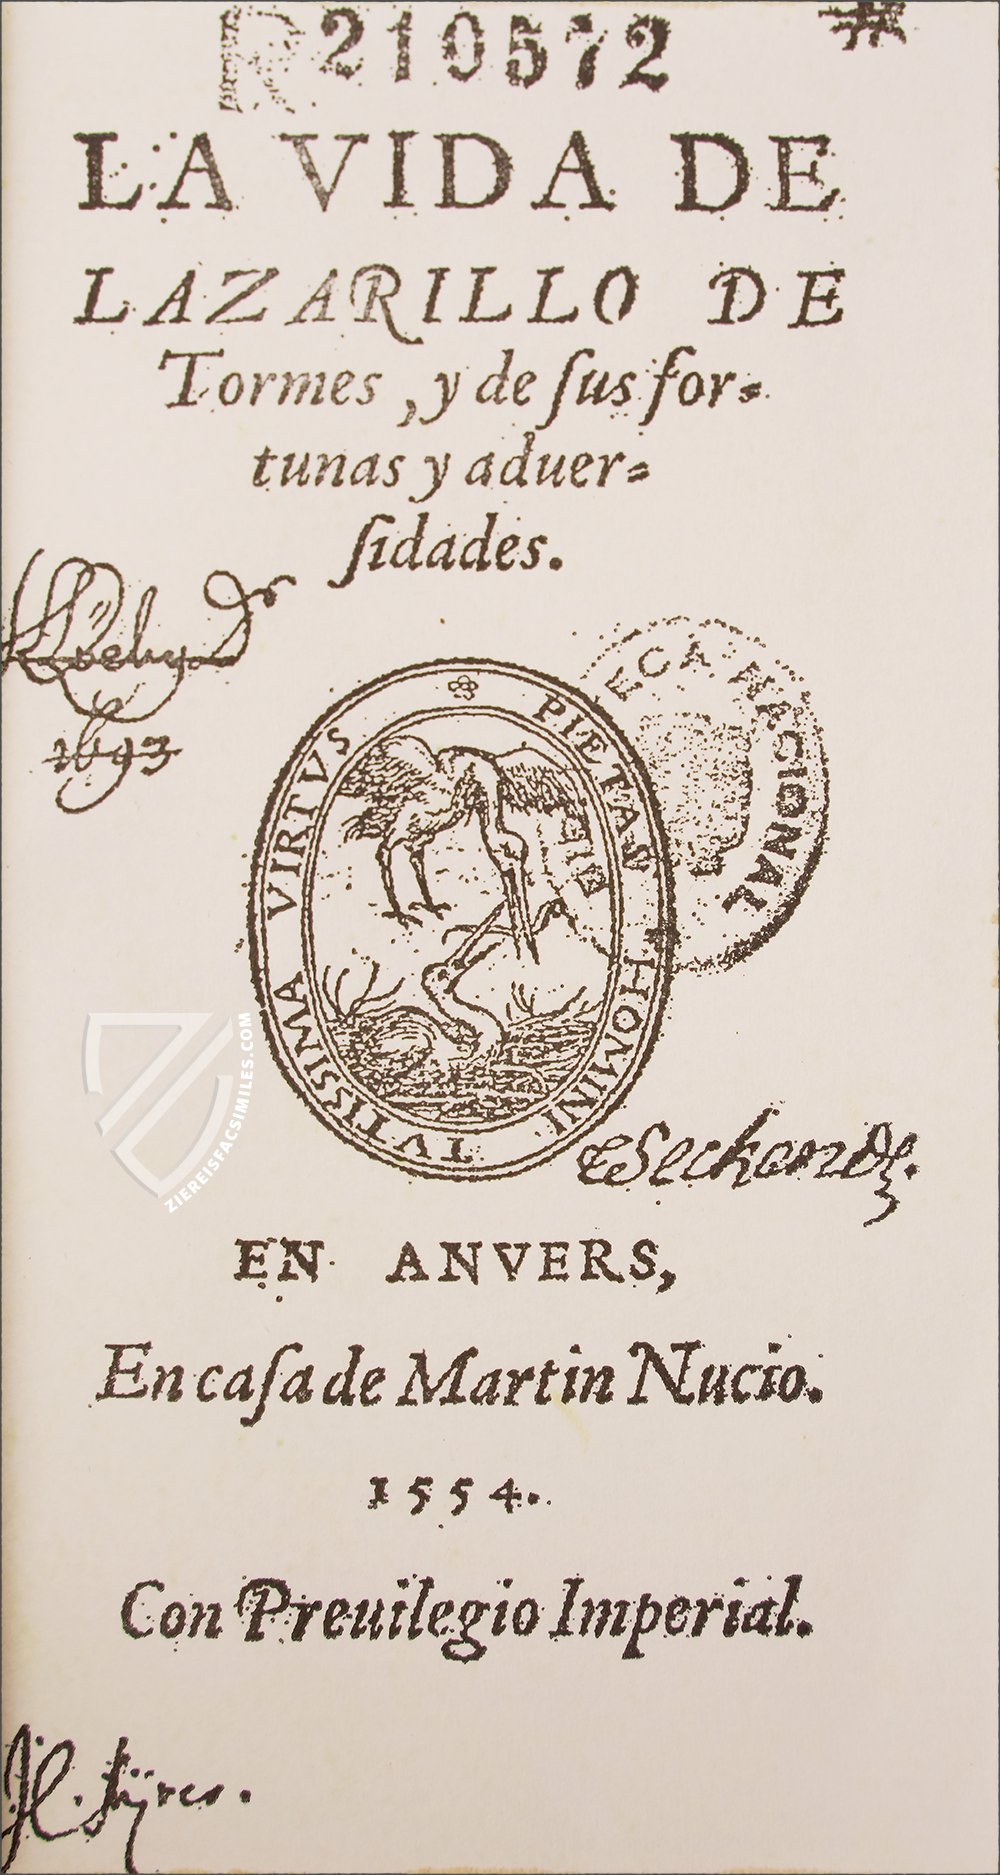 R 210572
LA VIDA DE
LAZARILLO DE
Tormes, y de ſus for⸗
tunas y aduer⸗
ſidades.
1693
PIETAS HOMINI TVTISSIMA VIRTVS
ECA NACIONAL
ZIEREISFACSIMILES.COM
EN ANVERS,
En caſa de Martin Nucio.
1554.
Con Preuilegio Imperial.